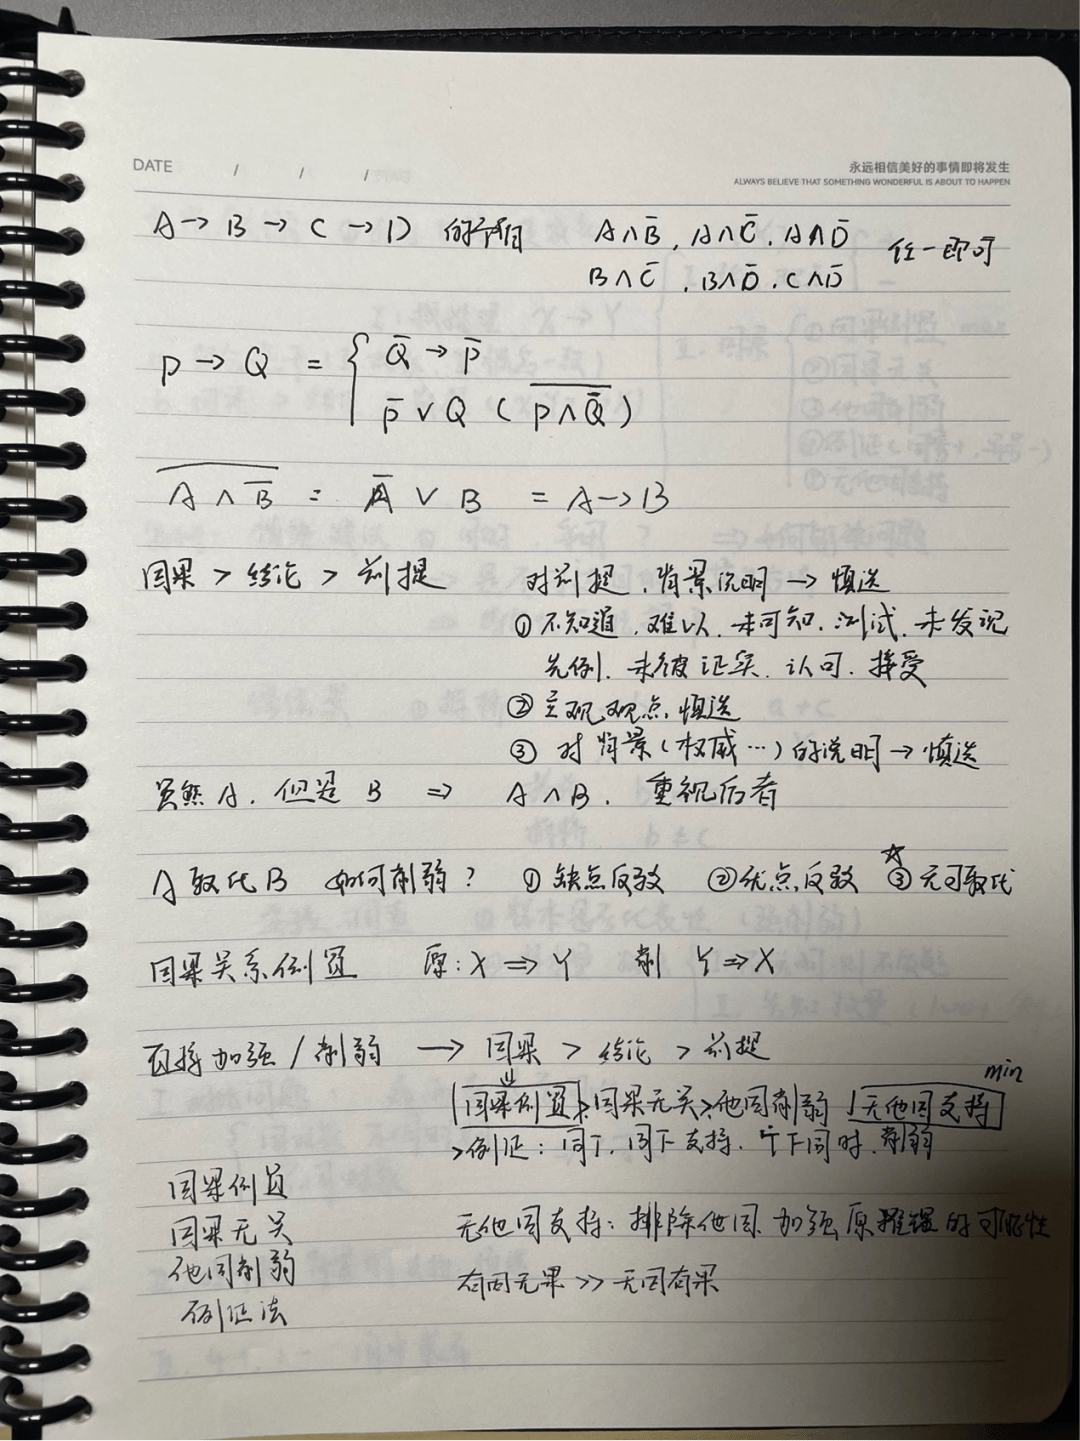 DATE / / /
永远相信美好的事情即将发生
ALWAYS BELIEVE THAT SOMETHING WONDERFUL IS ABOUT TO HAPPEN
A→B→C→D 的矛盾 A∧B̅, A∧C̅, A∧D̅ 任一即可
B∧C̅, B∧D̅, C∧D̅
P→Q = { Q̅→P̅
P̅∨Q ( \overline{P∧Q̅} )
\overline{A∧B̅} = A̅∨B = A→B
因果>结论>前提 对前提、背景说明→慎选
①不知道、难以、未可知、测试、未发现
先例、未被证实、认可、接受
②主观观点、慎选
③对背景(权威…)的说明→慎选
虽然A,但是B ⇒ A∧B,重视后者
A取代B 如何削弱? ①缺点反驳 ②优点反驳 ☆③无可取代
因果关系倒置 原:X⇒Y 削 Y⇒X
直接加强/削弱 → 因果>结论>前提
min
因果倒置>因果无关>他因削弱 无他因支持
>例证:同↑、同↓支持、个下同时、削弱
因果倒置
因果无关
他因削弱
例证法
无他因支持:排除他因、加强原推理的可能性
有因无果>>无因有果